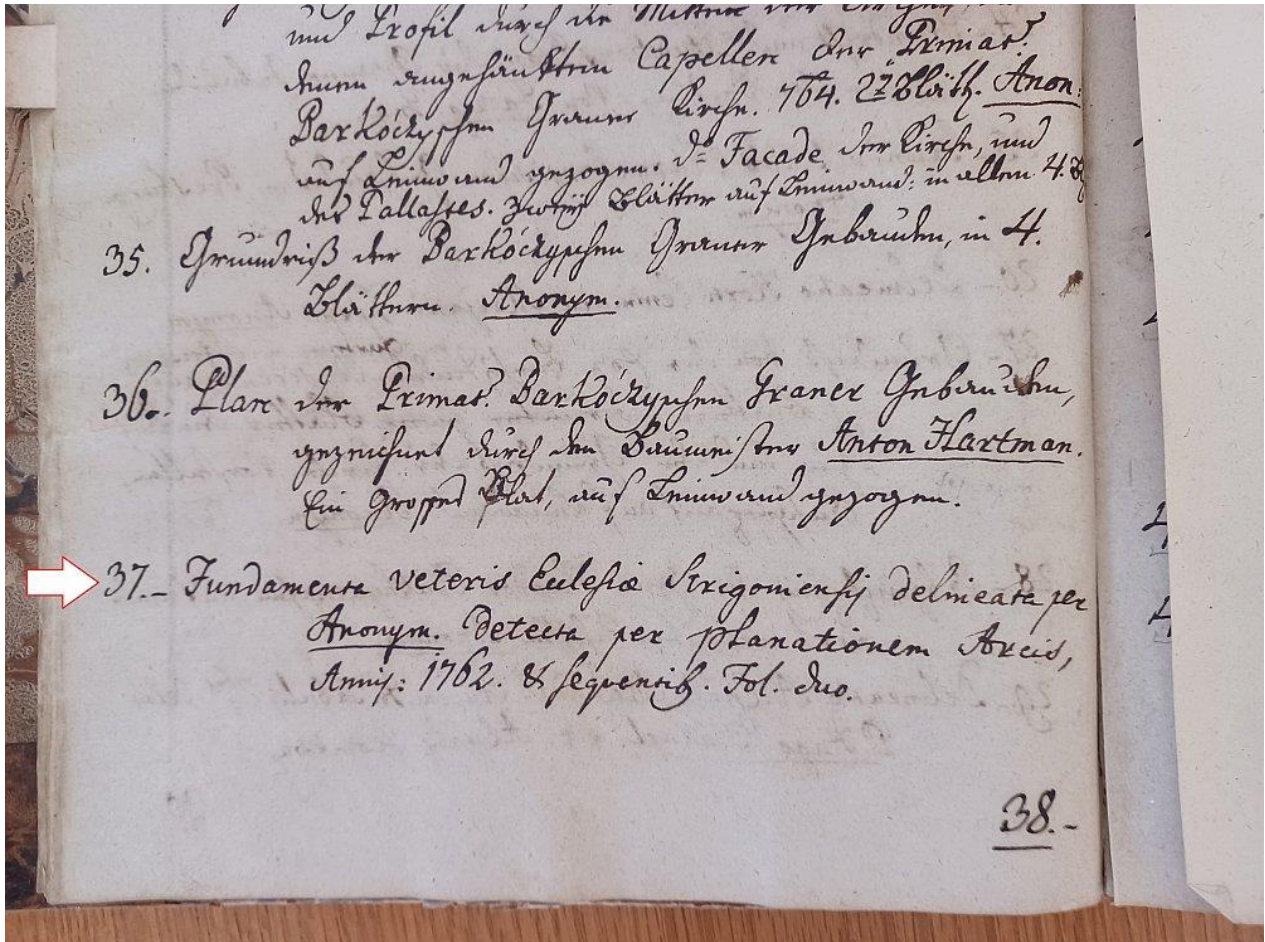 und Profil durch die Mitten der
denen angehänkten Capellen der Primat.
Barkóczyschen Graner Kirche. 764. 2 Blätt. Anon:
auf Leinwand gezogen. d= Facade der Kirche, und
des Pallastes. zweÿ Blätter auf Leinwand: in allem 4.
35. Grundriß der Barkóczyschen Graner Gebäuden, in 4.
Blättern. Anonym.
36. Plan der Primat. Barkóczyschen Graner Gebäuden,
gezeichnet durch den Baumeister Anton Hartman.
Ein Grosses Blat, auf Leinwand gezogen.
37.- Fundamenta veteris Eclesiæ Strigoniensis delineata per
Anonym. detecta per planationem Arcis,
Annis: 1762. & sequentib. Fol. duo.
38.-